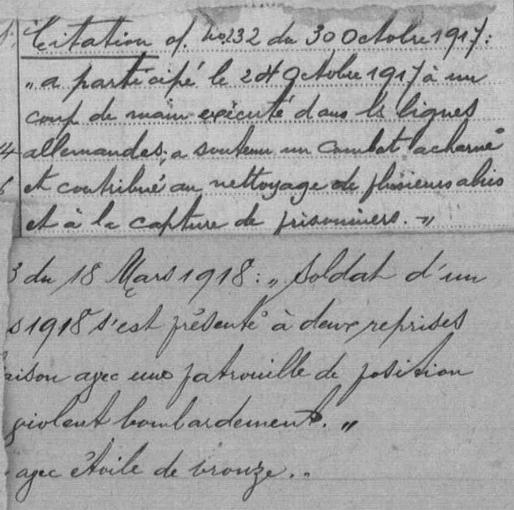 Citation of. No 232 du 30 Octobre 1917:
"a participé le 24 Octobre 1917 à un
coup de main exécuté dans les lignes
allemandes, a soutenu un combat acharné
et contribué au nettoyage de plusieurs abris
et à la capture de prisonniers."
3 du 18 Mars 1918: "Soldat d'un
s 1918 s'est présenté à deux reprises
aison avec une patrouille de position
violent bombardement."
avec étoile de bronze..